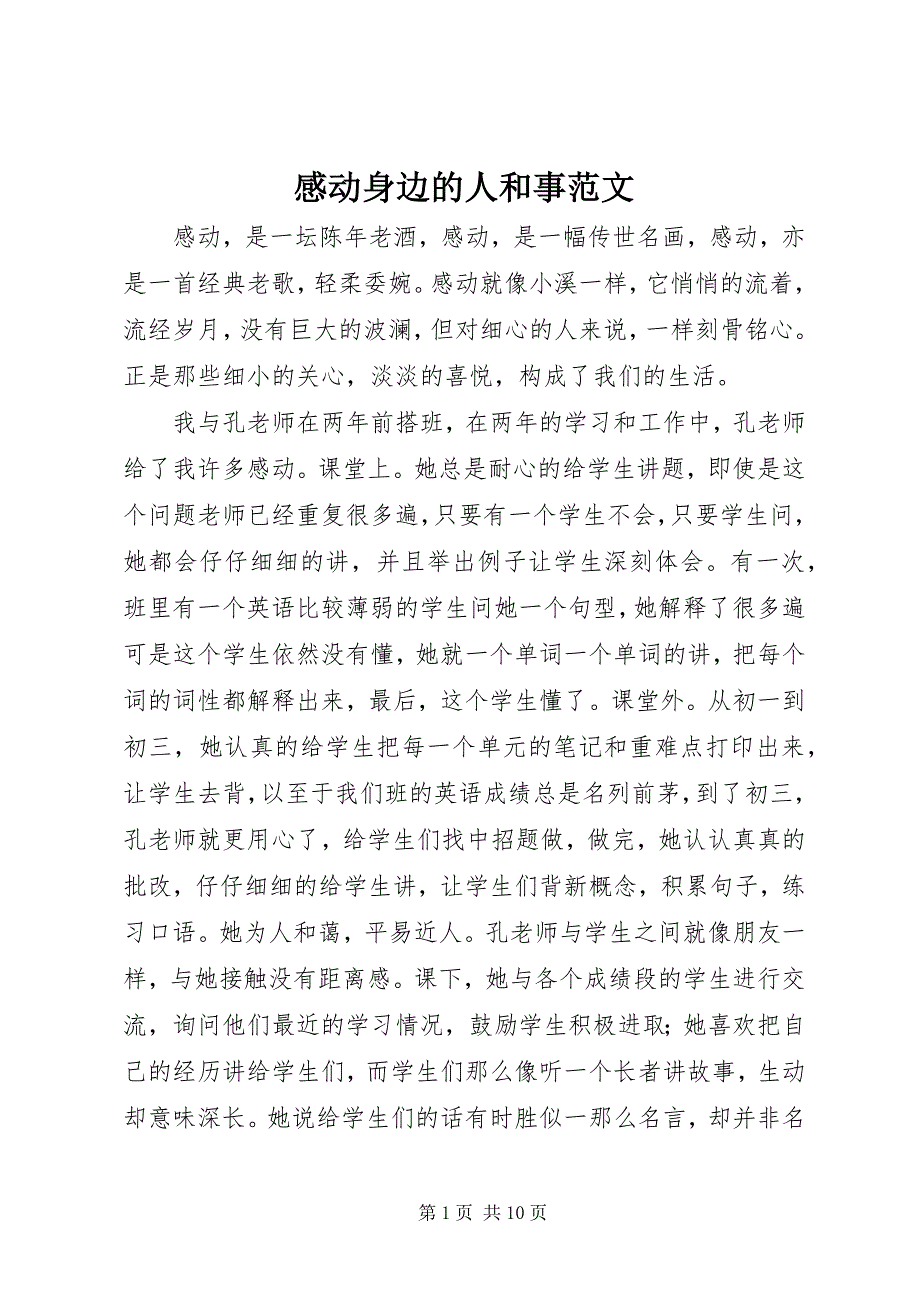 感动身边的人和事范文
感动，是一坛陈年老酒，感动，是一幅传世名画，感动，亦
是一首经典老歌，轻柔委婉。感动就像小溪一样，它悄悄的流着，
流经岁月，没有巨大的波澜，但对细心的人来说，一样刻骨铭心。
正是那些细小的关心，淡淡的喜悦，构成了我们的生活。
我与孔老师在两年前搭班，在两年的学习和工作中，孔老师
给了我许多感动。课堂上。她总是耐心的给学生讲题，即使是这
个问题老师已经重复很多遍，只要有一个学生不会，只要学生问，
她都会仔仔细细的讲，并且举出例子让学生深刻体会。有一次，
班里有一个英语比较薄弱的学生问她一个句型，她解释了很多遍
可是这个学生依然没有懂，她就一个单词一个单词的讲，把每个
词的词性都解释出来，最后，这个学生懂了。课堂外。从初一到
初三，她认真的给学生把每一个单元的笔记和重难点打印出来，
让学生去背，以至于我们班的英语成绩总是名列前茅，到了初三，
孔老师就更用心了，给学生们找中招题做，做完，她认认真真的
批改，仔仔细细的给学生讲，让学生们背新概念，积累句子，练
习口语。她为人和蔼，平易近人。孔老师与学生之间就像朋友一
样，与她接触没有距离感。课下，她与各个成绩段的学生进行交
流，询问他们最近的学习情况，鼓励学生积极进取；她喜欢把自
己的经历讲给学生们，而学生们那么像听一个长者讲故事，生动
却意味深长。她说给学生们的话有时胜似一那么名言，却并非名
第 1 页 共 10 页